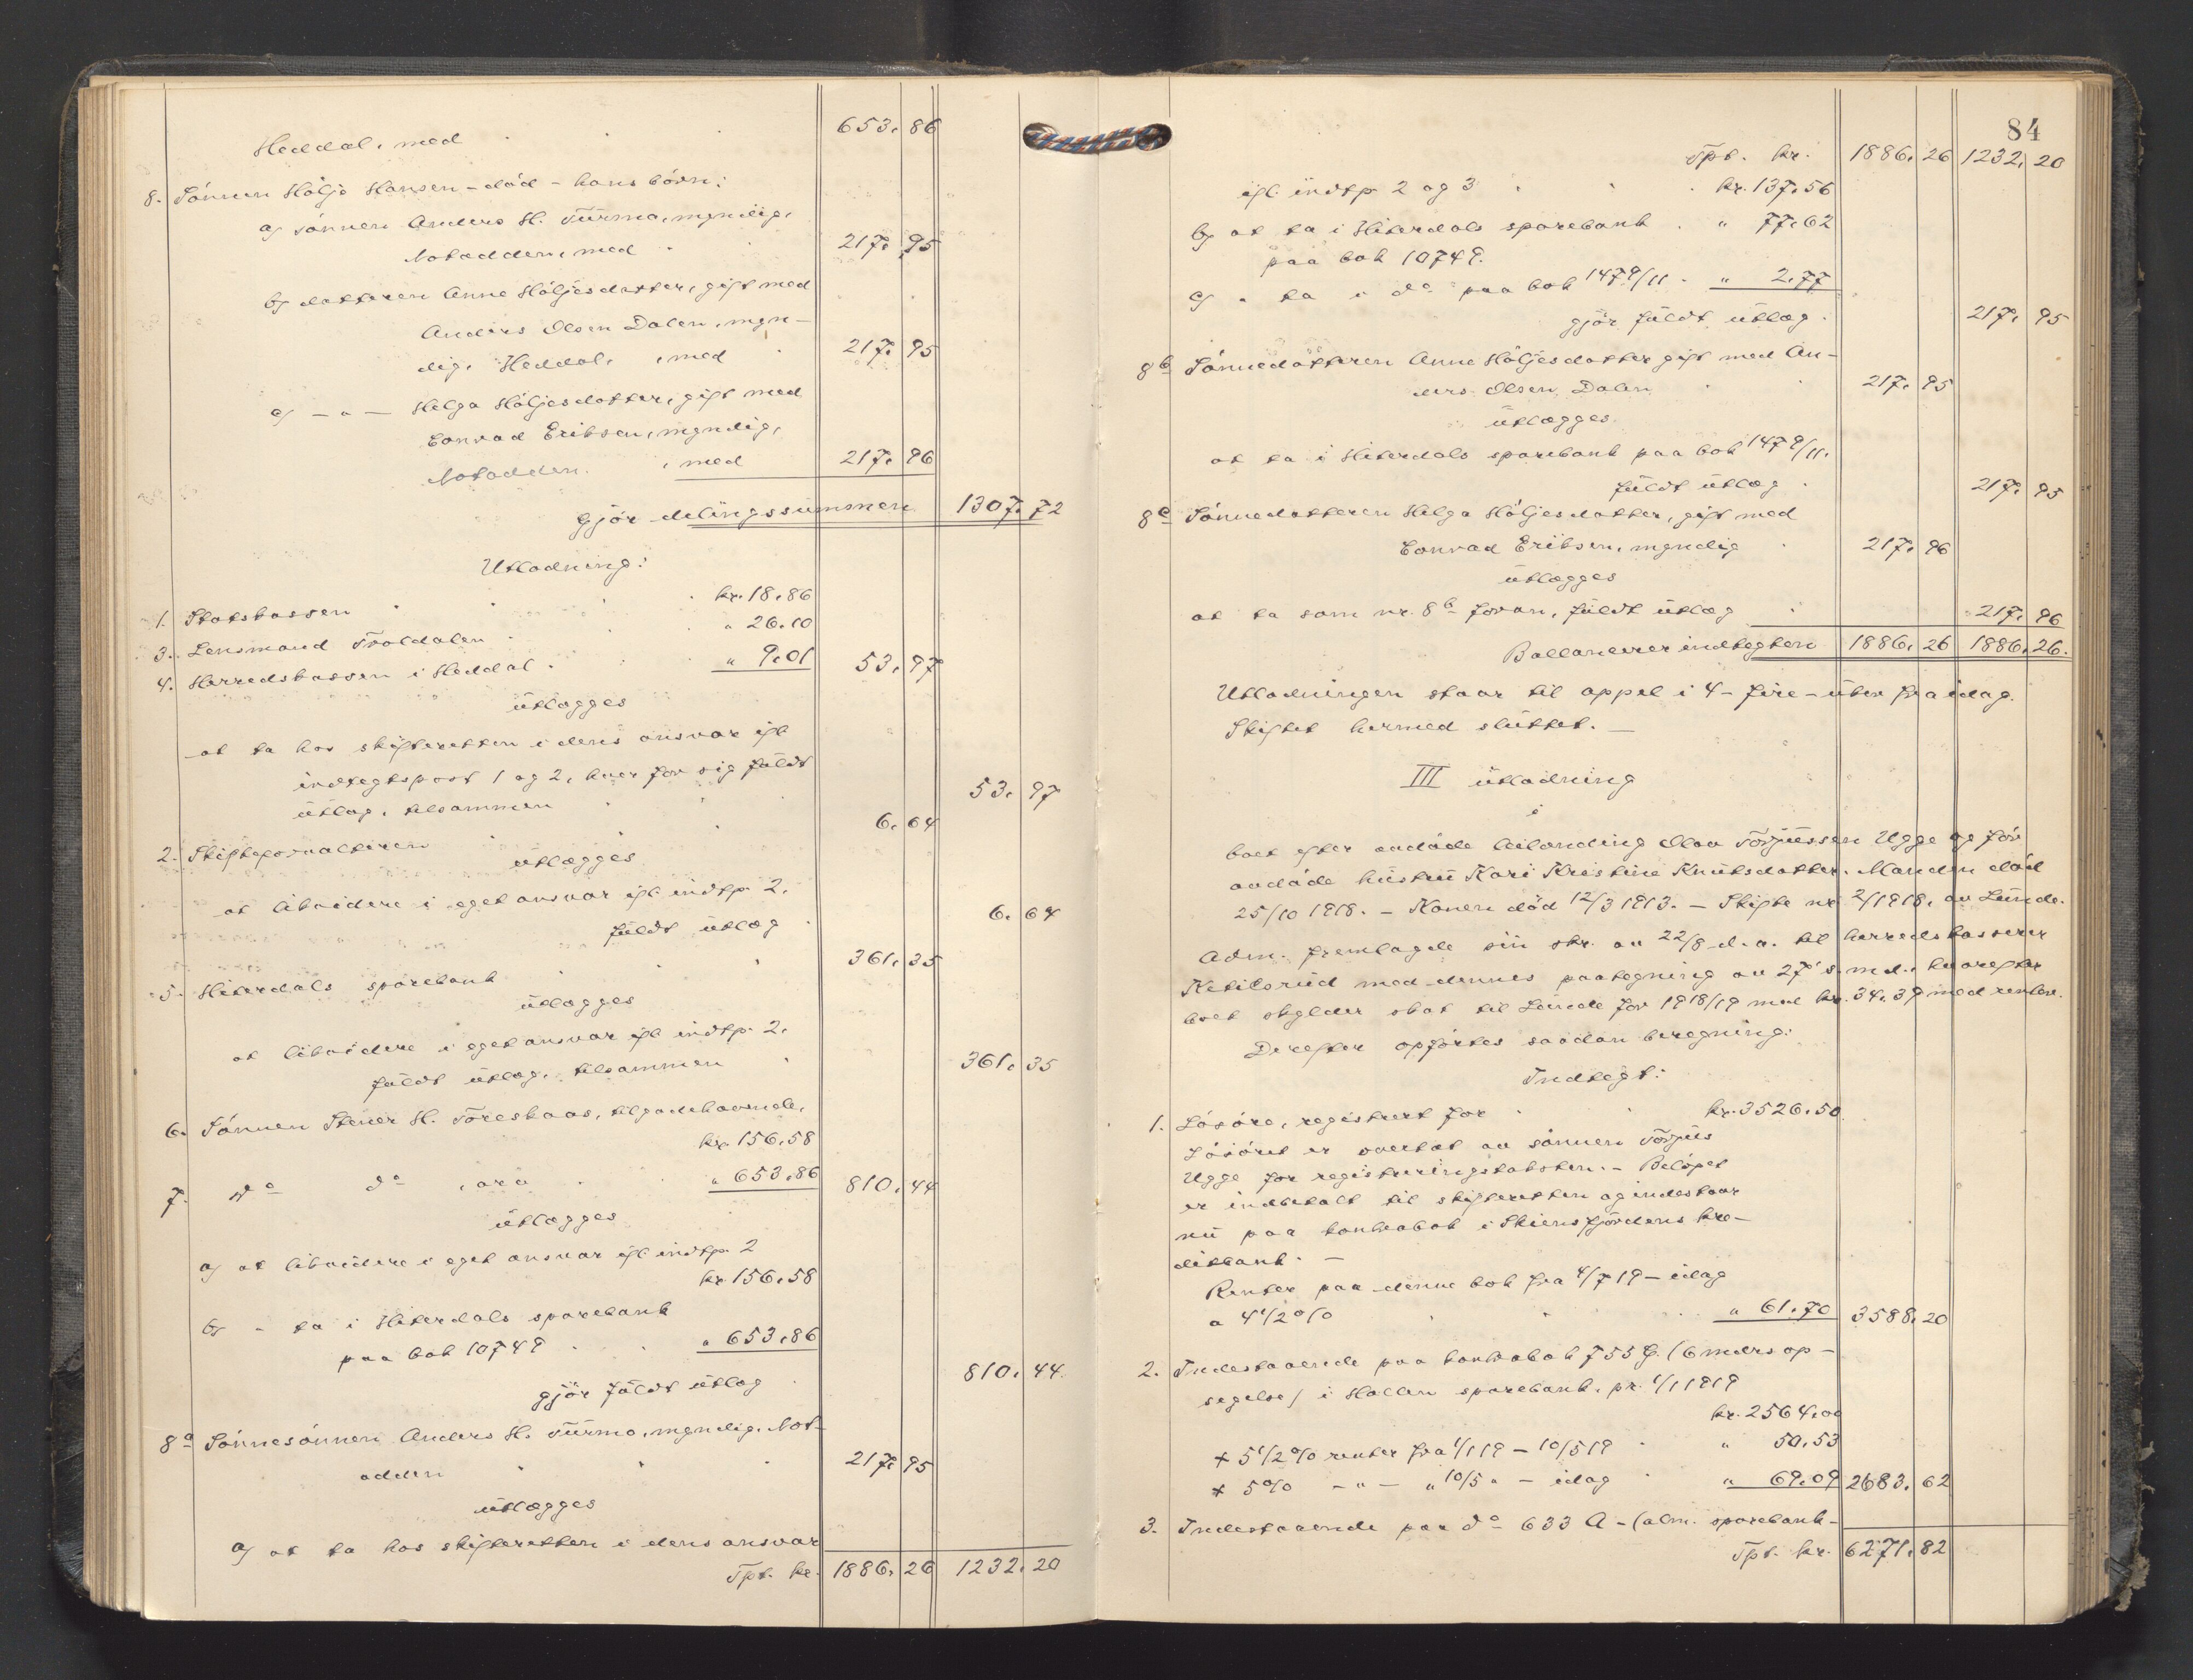 Heddal, med 653. 86
8. Sönnen Hölje Hansen - död - hans börn:
a) sönnen Anders H. Türmo, myndig,
Notodden, med 217. 95
b) datteren Anne Höljesdatter, gift med
Anders Olsen Dalen, myn-
dig, Heddal, med 217. 95
c) - " - Helga Höljesdatter, gift med
Conrad Eriksen, myndig,
Notodden, med 217. 96
gjör delingssummen 1307. 72
Utlodning:
1. Statskassen kr. 18.86
3. Lensmand Troldalen " 26.10
4. Herredskassen i Heddal " 9.01 53. 97
utlægges
at ta hos skifteretten i dens ansvar ifl.
indtegtspost 1 og 2, hver for sig füldt
utlæg, tilsammen 53. 97
2. Skifteforvalteren 6. 64
utlægges
at likvidere i eget ansvar ifl. indtp. 2.
füldt utlæg 6. 64
5. Hiterdals sparebank 361. 35
utlægges
at likvidere i eget ansvar ifl. indtp. 2.
füldt utlæg, tilsammen 361. 35
6. Sönnen Stener H.Föreskaas, tilgodehavende,
kr. 156.58
7. do do , arv " 653.86 810. 44
utlægges
a) at likvidere i eget ansvar ifl. indtp. 2
kr. 156.58
b) - ta i Hiterdals sparebank
paa bok 10749 " 653.86
gjör füldt utlæg 810. 44
8a Sönnesönnen Anders H. Türmo, myndig, Not-
odden 217. 95
utlægges
a) at ta hos skifteretten i dens ansvar
Tpt. kr. 1886. 26 1232. 20
84
Tpt. kr. 1886. 26 1232. 20
ifl. indtp. 2 og 3 kr. 137.56
b) at ta i Hiterdals sparebank " 77.62
paa bok 10749.
c) " ta i do paa bok 1479/11 " 2.77
gjör füldt utlæg 217. 95
8b Sönnedatteren Anne Höljesdatter gift med An-
ders Olsen Dalen 217. 95
utlægges
at ta i Hiterdals sparebank paa bok 1479/11.
füldt utlæg 217. 95
8c Sönnedatteren Helga Höljesdatter, gift med
Conrad Eriksen, myndig 217. 96
utlægges
at ta som nr. 8b foran, füldt utlæg 217. 96
Ballancerer indtegten 1886. 26 1886. 26.
Utlodningen staar til appel i 4 - fire - üker fra idag.
Skiftet hermed sluttet. -
III ütlodning
i
boet efter avdöde leilænding Olav Torjüssen Ugge og för
avdöde hüstrü Kari Kristine Knütsdatter. Manden död
25/10 1918. - Konen död 12/3 1913. - Skifte nr. 2/1918, av Lünde.
Adm. fremlagde sin skr. av 22/8 d.a. til herredskasserer
Ketilsrüd med dennes paategning av 27' s.md., hvorefter
boet skylder skat til Lünde for 1918/19 med kr. 34.39 med renter.
Derefter opförtes saadan beregning:
Indtegt:
1. Lösöre, registrert for kr. 3526.50
Lösöret er overtat av sönnen Torjüs
Ugge for registreringstaksten. - Belöpet
er indbetalt til skifteretten og indestaar
nü paa kontrabok i Skiensfjordens kre-
ditbank. -
Renter paa denne bok fra 4/7 19 - idag
a 4 1/2 % " 61.70 3588. 20
2. Indestaaende paa kontrabok 755 F. (6 mdrs op-
segelse) i Hollen sparebank, pr. 1/1 1919
kr. 2564.00
+ 5 1/2 % renter fra 1/1 19 - 10/5 19 " 50.53
+ 5 % - " - " 10/5 " - idag " 69.09 2683. 62
3. Indestaaende paa do 633 A - (alm. sparebank-
Tpt. kr. 6271. 82